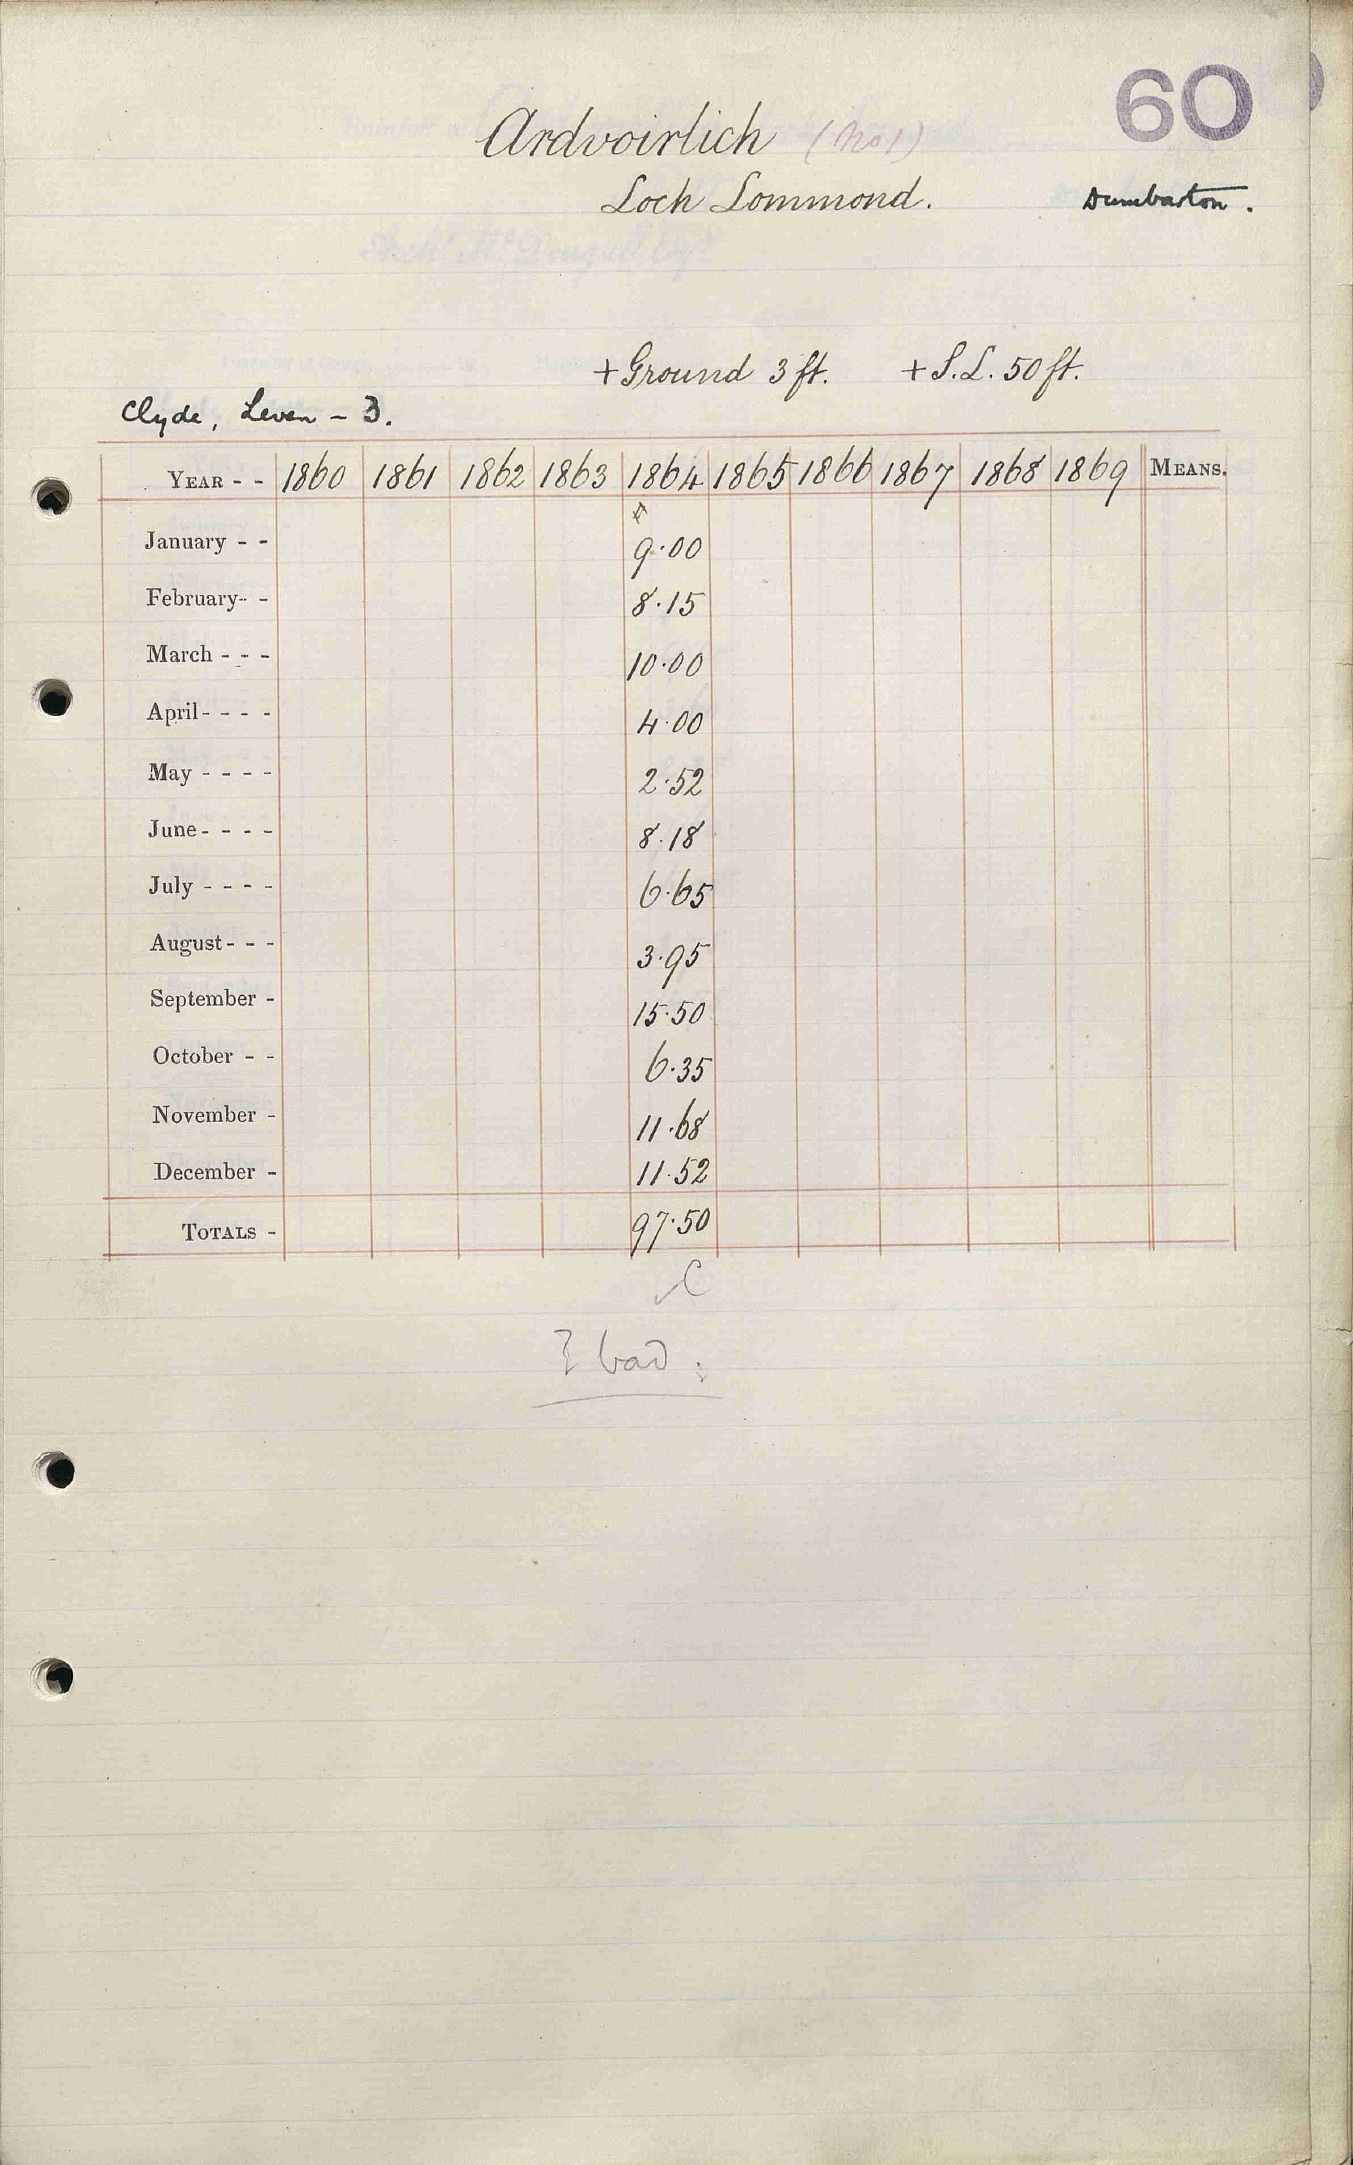 60
Ardvoirlich (No 1)
Loch Lommond. Dumbarton.
+Ground 3 ft. +S.L. 50 ft.
Clyde, Leven - 3.
YEAR - - 1860 1861 1862 1863 1864 1865 1866 1867 1868 1869 MEANS.
January - - 9.00
February - - 8.15
March - - - 10.00
April - - - - 4.00
May - - - - 2.52
June - - - - 8.18
July - - - - 6.65
August - - - 3.95
September - 15.50
October - - 6.35
November - 11.68
December - 11.52
TOTALS - 97.50
C
? bad.